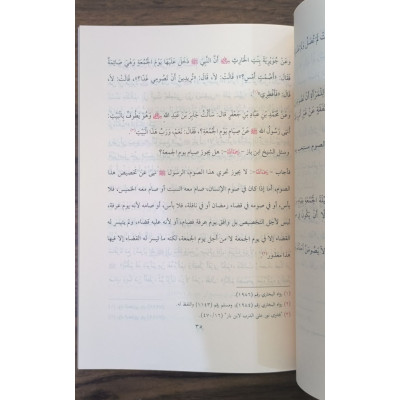 وَعَنْ جُوَيْرِيَةَ بِنْتِ الْحَارِثِ أَنَّ النَّبِيَّ ﷺ دَخَلَ عَلَيْهَا يَوْمَ الْجُمُعَةِ وَهِيَ صَائِمَةٌ
فَقَالَ: «أَصُمْتِ أَمْسِ؟» قَالَتْ: لَا، قَالَ: «تُرِيدِينَ أَنْ تَصُومِي غَدًا؟»، قَالَتْ: لَا،
قَالَ: «فَأَفْطِرِي»
وَعَنْ مُحَمَّدِ بْنِ عَبَّادِ بْنِ جَعْفَرٍ قَالَ: سَأَلْتُ جَابِرَ بْنَ عَبْدِ اللهِ وَهُوَ يَطُوفُ بِالْبَيْتِ:
أَنَهَى رَسُولُ اللهِ ﷺ عَنْ صِيَامِ يَوْمِ الْجُمُعَةِ؟، فَقَالَ: نَعَمْ، وَرَبِّ هَذَا الْبَيْتِ
وسئل الشيخ ابن باز - - : هل يجوز صيام يوم الجمعة؟
فأجاب - - : لا يجوز تحري هذا الصوم، الرسول ﷺ نهى عن تخصيص هذا
الصيام، أما إذا كان في صوم الإنسان، صام معه السبت أو صام معه الخميس، فلا
بأس، أو في صومه في قضاء رمضان أو في نافلة، فلا بأس، أو صامه لأنه يوم عرفة،
ليس لأجل التخصيص بل وافق يوم عرفة فصام، أو لأنه عليه قضاء، ولم يتيسر له
القضاء إلا في يوم الجمعة لا من أجل يوم الجمعة، لكنه ما تيسر له القضاء إلا فيها
هذا معذور
(١) رواه البخاري رقم (١٩٨٦)
(٢) رواه البخاري رقم (١٩٨٤)، ومسلم رقم (١١٤٣) واللفظ له
(٣) "فتاوى نور على الدرب لابن باز" (٤٧٠/١٦).
٣٨